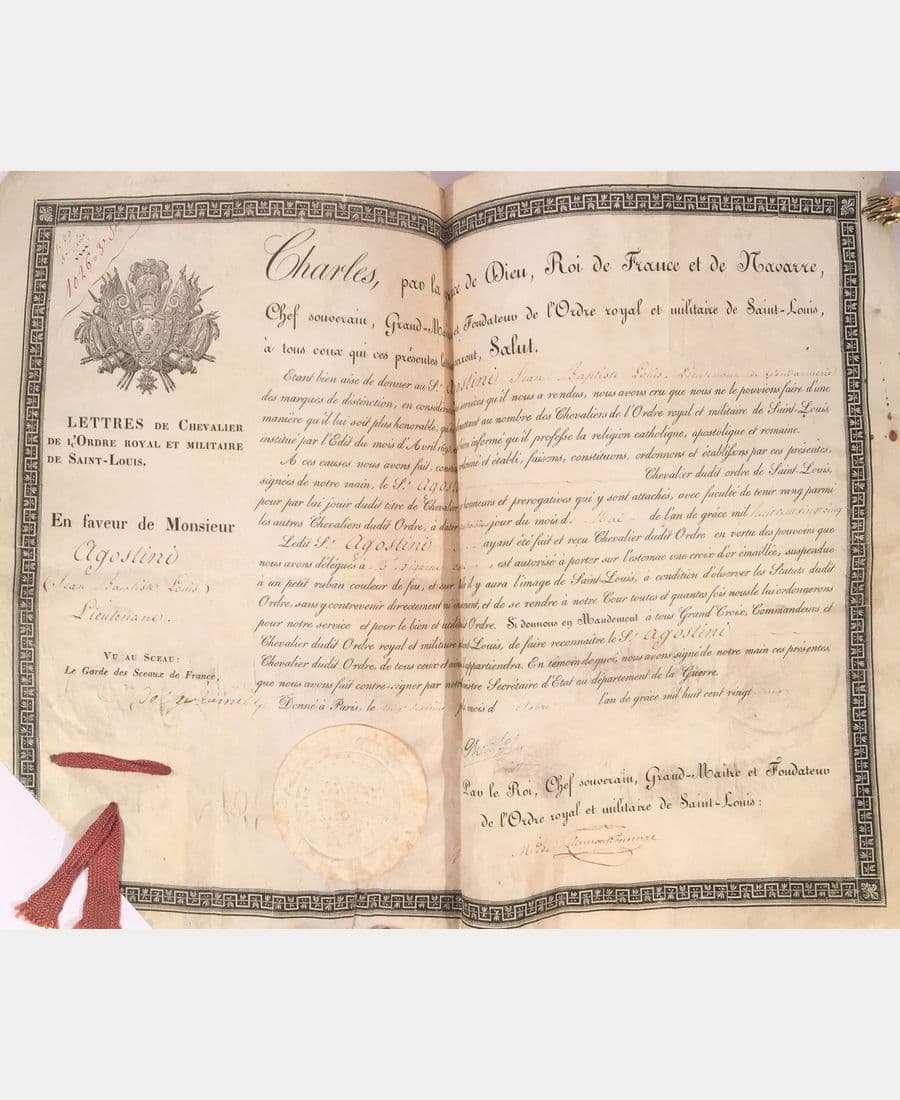 1026.
LETTRES DE CHEVALIER
DE L'ORDRE ROYAL ET MILITAIRE
DE SAINT-LOUIS.
En faveur de Monsieur
Agostini
(Jean Baptiste Louis)
Lieutenant.
VU AU SCEAU:
Le Garde des Sceaux de France,
Charles, par la ce de Dieu, Roi de France et de Navarre,
Chef souverain, Grand-M et Fondateur de l'Ordre royal et militaire de Saint-Louis,
à tous ceux qui ces présentes verront, Salut.
Etant bien aise de donner au Sr. Agostini Jean Baptiste Louis, Lieutenant de Gendarmerie
des marques de distinction, en considér services qu'il nous a rendus, nous avons cru que nous ne le pouvions faire d'une
manière qu'il lui soit plus honorable, qu mettant au nombre des Chevaliers de l'Ordre royal et militaire de Saint-Louis
institué par l'Edit du mois d'Avril 169 informé qu'il professe la religion catholique, apostolique et romaine.
A ces causes nous avons fait, cons onné et établi, faisons, constituons, ordonnons et établissons par ces présentes,
signées de notre main, le Sr. Agost Chevalier dudit ordre de Saint-Louis,
pour par lui jouir dudit titre de Chevalier honneurs et prérogatives qui y sont attachés, avec faculté de tenir rang parmi
les autres Chevaliers dudit Ordre, à dater jour du mois d Mai de l'an de grâce mil
Ledit Sr. Agostini ayant été fait et reçu Chevalier dudit Ordre en vertu des pouvoirs que
nous avons délégués à est autorisé à porter sur l'estomac une croix d'or émaillée, suspendue
à un petit ruban couleur de feu, et sur la il y aura l'image de Saint-Louis, à condition d'observer les Statuts dudit
Ordre, sans y contrevenir directement ni ement, et de se rendre à notre Cour toutes et quantes fois nous le lui ordonnerons
pour notre service et pour le bien et utilité Ordre. Si donnons en Mandement à tous Grand'Croix, Commandeurs et
Chevalier dudit Ordre royal et militaire t-Louis, de faire reconnaître le Sr. Agostini
Chevalier dudit Ordre, de tous ceux et appartiendra. En témoin de quoi, nous avons signé de notre main ces présentes
que nous avons fait contre-signer par notre Ministre Secrétaire d'Etat au département de la Guerre.
Donné à Paris, le mois d l'an de grâce mil huit cent vingt
Par le Roi, Chef souverain, Grand-Maître et Fondateur
de l'Ordre royal et militaire de Saint-Louis:
Mis de Clermont Tonnerre